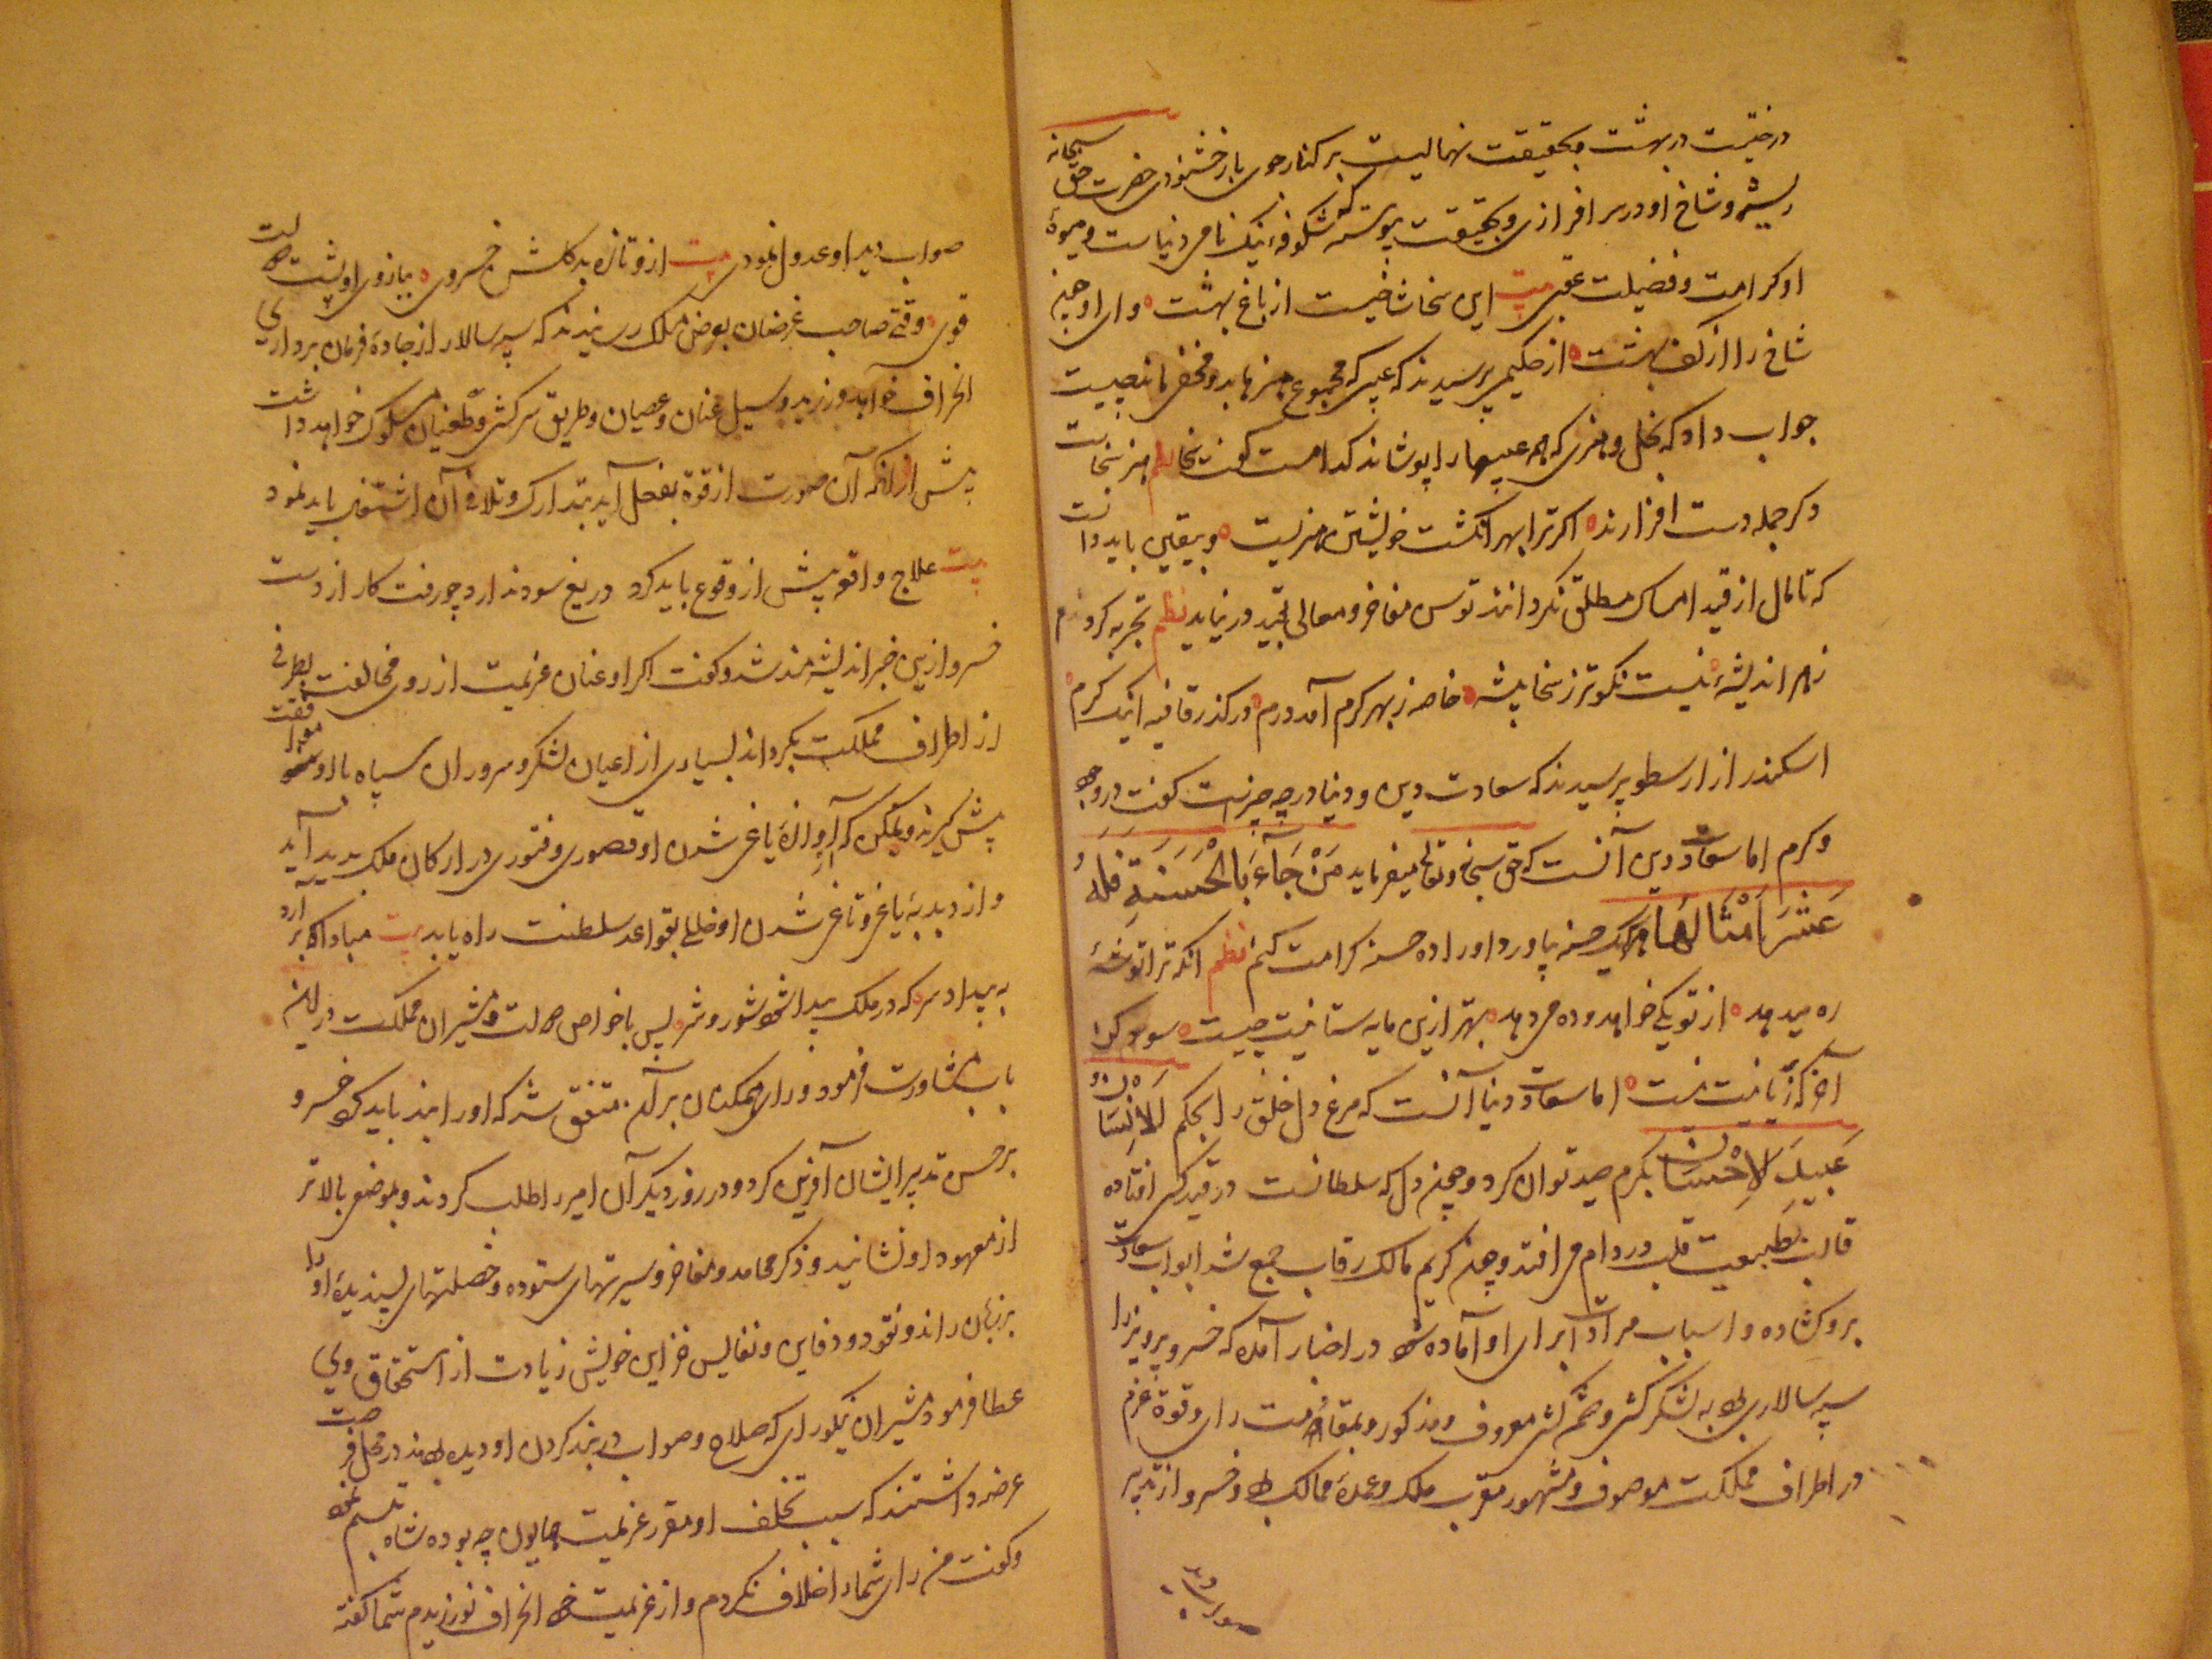 درختیست در بهشت و بحقیقت نهالیست بر کنار جوی بار خشنودی حضرت حق سبحانه
ریشه و شاخ او در سر افرازی و بحقیقت پیوسته که شکوفه نیک نامی دنیاست و میوهٔ
او کرامت و فضیلت عقبی بیت این سخا شاخیست از باغ بهشت وای او
شاخ را از کف بهشت از حکیمی پرسیدند که عیبی که مجموع هنرها بدو مخفی ماند چیست
جواب داد که بخل و هنری که همه عیبها را بپوشاند کدامست گفت سخا نظم هنر سخاست
دگر جمله دست افزارند اگر ترا بهر انگشت خویشتن هنریست و بیقین باید دانست
که تا مال از قید امساک مطلق نگردانند توسن مفاخر و معالی بقید در نیاید نظم تجربه کردم
ز هر اندیشهٔ نیست نکوتر ز سخا پیشهٔ خاصه ز بهر کرم آمد درم در گذر قافیه اینک کرم
اسکندر از ارسطو پرسیدند که سعادت دین و دنیا در چه چیزست گفت در جود
و کرم اما سعادت دین آنست که حق سبحانه وتعالی میفرماید مَنْ جَآءَ بِالْحَسَنَةِ فَلَهُ
عَشْرُ اَمْثَالِهَا هر که یک حسنه بیاورد او را ده حسنه کرامت کنم نظم آنکه ترا توشهٔ
ره میدهد از تو یکی خواهد و ده می دهد بهتر ازین مایه ستانیت چیست سود کن
آخر که زیانیت نیست اما سعادت دنیا آنست که مرغ دل خلق را بحکم اَلْاِنْسَانُ
عَبِیدُ لْاِحْسَان بکرم صید توان کرد و چون دل که سلطانست در قید کسی افتاده
قالب بطبیعت قلب در دام می افتد و چون کریم مالک رقاب جمع شد ابواب سعادت
برو گشاده و اسباب مرادات برای او آماده شود در اخبار آمده که خسرو پرویز را
سپه سالاری بود به لشکر کشی و خصم کشی معروف و مذکور و رای و قوة عزم
در اطراف مملکت موصوف و مشهور مقرب ملک و عمدهٔ ممالک بود و خسرو از تدبیر
صواب دید
صواب دید او عدول ننمودی بیت از و تازه بد گلشن خسروی ببازوی او پشت دولت
قوی وقتی صاحب غرضان بعرض ملک رسانیدند که سپه سالار از جادهٔ فرمان برداری
انحراف خواهد ورزید و سبیل عنان و عصیان و طریق سرکشی و طغیان مسلوک خواهد داشت
پیش از آنکه آن صورت از قوة بفعل آید بتدارک و تلافی آن اشتغال باید نمود
بیت علاج واقعه پیش از وقوع باید کرد دریغ سود ندارد چو رفت کار از دست
خسرو ازین خبر اندیشه مند شد و گفت اگر او عنان عزیمت از روی مخالفت بطرفی
از اطراف مملکت بگرداند بسیاری از اعیان لشکر و سروران سپاه با او موافقت
پیش گیرند و یمکن که آوازهٔ یاغی شدن او قصوری و فتوری در ارکان ملک پدید آید
و از دبدبهٔ یاغی و تاغی شدن او خللی بقواعد سلطنت راه یابد بیت مبادا که بر آرد
به بیداد سر که در ملک پیدا شود شور و شر پس با خواص دولت و مشیران مملکت درین
باب مشاورت فرمود و رای همکنان بر آن متفق شد که او را بند باید کرد خسرو
بر حسن تدبیر ایشان آفرین کرد و در روز دیگر آن امیر را طلب کردند و بموضعی بالاتر
از معهود او نشانید و ذکر محامد و مفاخر و سیرتهای ستوده و خصلتهای پسندیدهٔ او را
بر زبان راند و نقود و دفاین و نفایس خزاین خویش زیادت از استحقاق وی
عطا فرمود مشیران نیکو رای که صلاح و صواب در بند کردن او دیده بودند در محل فرصت
عرضه داشتند که سبب تخلف از مقرر عزیمت همایون چه بوده شاه تبسم نمود
و گفت من رای شما را خلاف نکردم و از عزیمت خود انحراف نورزیدم شما گفته